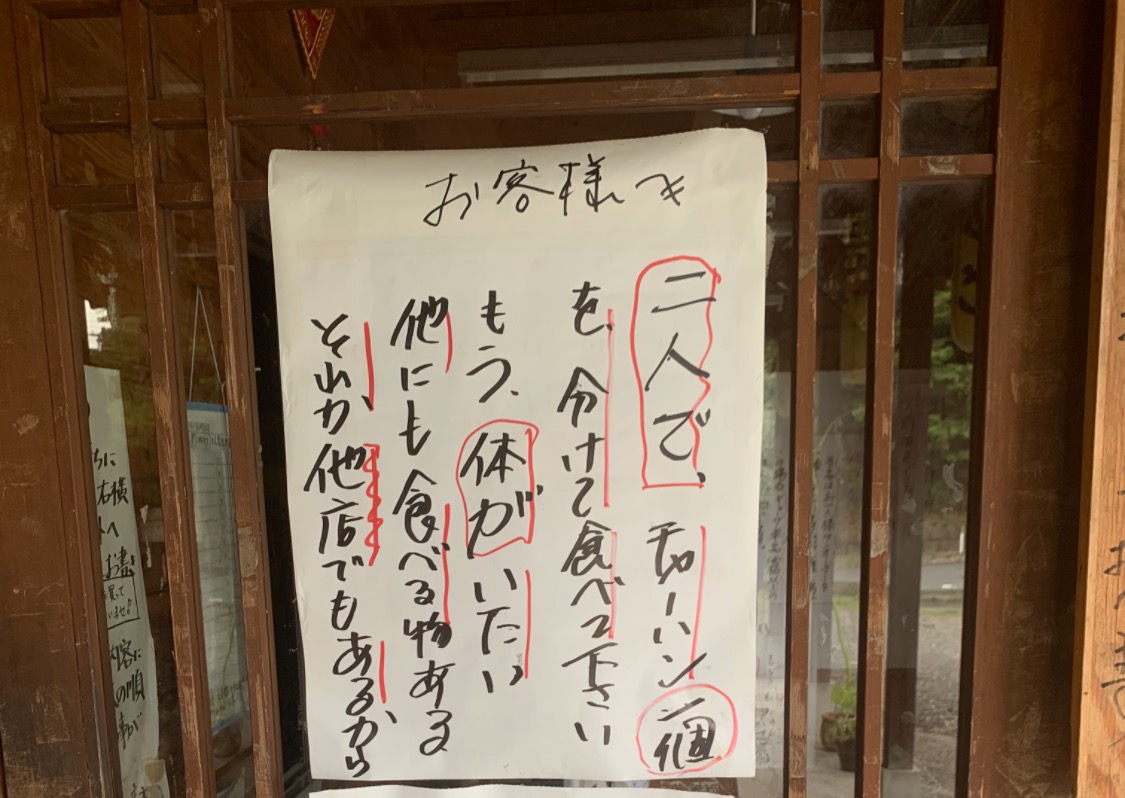 お客様へ
二人で、チャーハン一個
を、分けて食べて下さい
もう、体がいたい
他にも食べる物ある
それか、他店でもあるから
右横
へ
お書